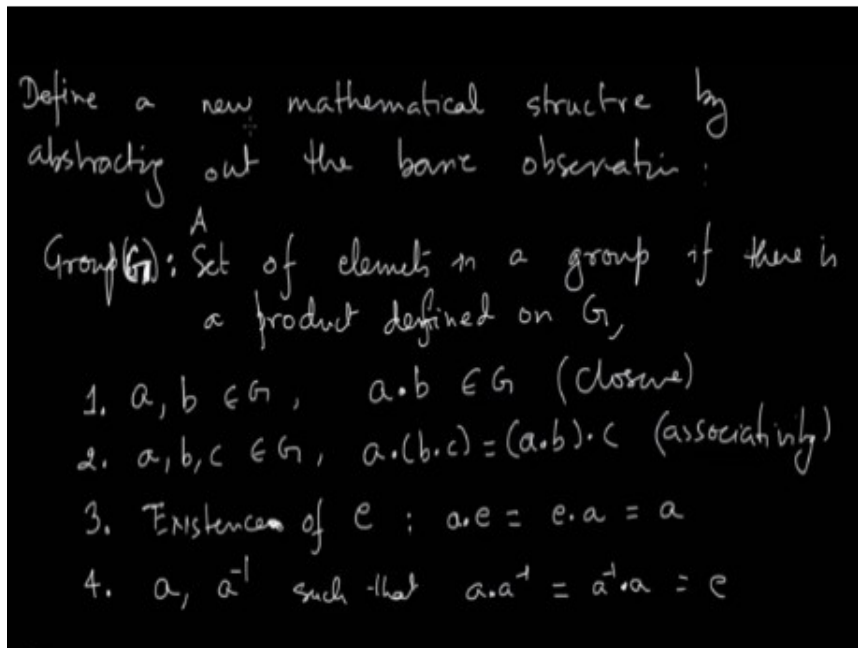 Define a new mathematical structre by
abstracting out the basic observatin :
A
Group(G): Set of elements is a group if there is
a product defined on G,
1. a, b ∈ G, a.b ∈ G (closure)
2. a, b, c ∈ G, a.(b.c) = (a.b).c (associativity)
3. Existence of e ; a.e = e.a = a
4. a, a⁻¹ such that a.a⁻¹ = a⁻¹.a = e